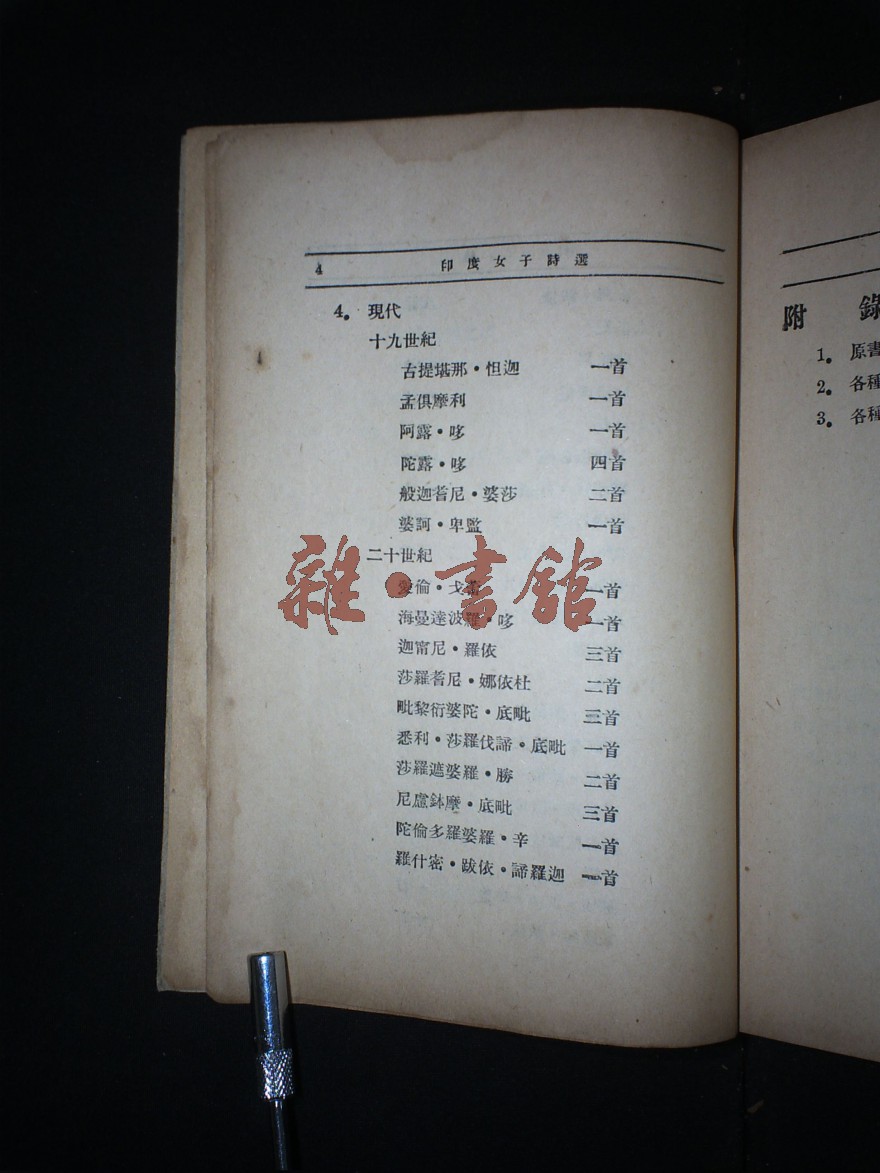 4 印度女子詩選
4. 現代
十九世紀
古提堪那·怛迦 一首
孟俱摩利 一首
阿露·哆 一首
陀露·哆 四首
般迦耆尼·婆莎 二首
婆訶·卑監 一首
二十世紀
愛倫·戈 一首
海曼達波羅·哆 一首
迦甯尼·羅依 三首
莎羅耆尼·娜依杜 二首
毗黎衍婆陀·底毗 三首
悉利·莎羅伐諦·底毗 一首
莎羅遮婆羅·勝 二首
尼盧鉢摩·底毗 三首
陀倫多羅婆羅·辛 一首
羅什密·跋依·諦羅迦 一首
雜·書館
附 錄
1. 原書
2. 各種
3. 各種